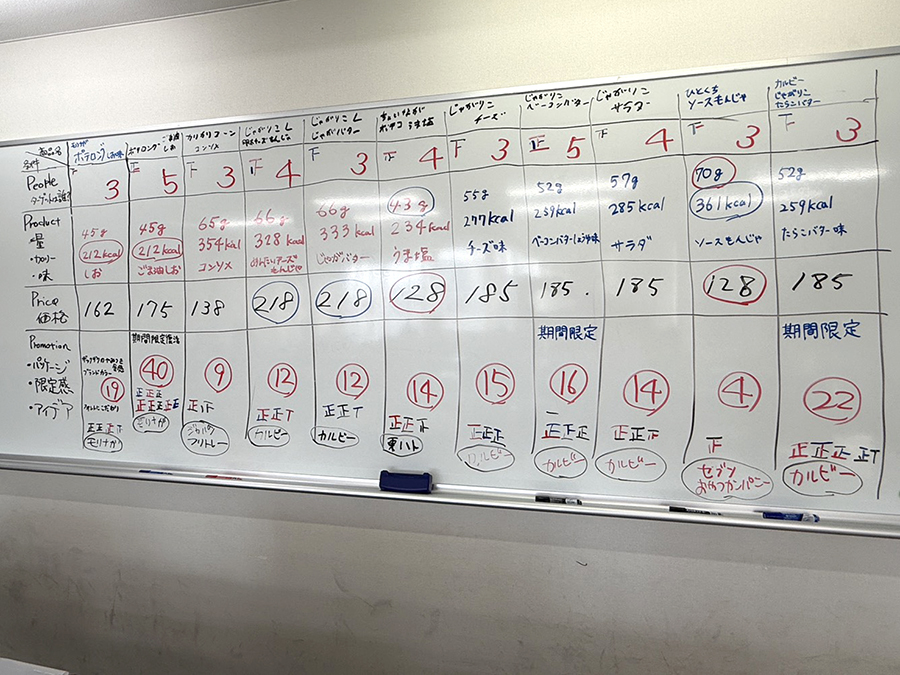 商品名
条件
ポテロング しお味
ポテロング しお
カリカリコーン
コンソメ
じゃがりこL
じゃがりこL
じゃがバター
じゃがりこ
チーズ
じゃがりこ
ベーコンバター
じゃがりこ
サラダ
ひとくち
ソースもんじゃ
カルビー
じゃがりこ
たらこバター
People
ターゲットは誰?
3
正 5
下 3
正 4
下 3
正 4
下 3
正 5
下 4
下 3
下 3
Product
・量
・カロリー
・味
45g
212kcal
しお
45g
212kcal
ごま油しお
65g
354kcal
コンソメ
66g
328kcal
めんたいチーズ
もんじゃ
66g
333kcal
じゃがバター
43g
234kcal
うま塩
55g
277kcal
チーズ味
52g
259kcal
ベーコンバターしょうゆ味
57g
285kcal
サラダ
70g
361kcal
ソースもんじゃ
52g
259kcal
たらこバター味
Price
価格
162
175
138
218
218
128
185
185.
185
128
185
Promotion
・パッケージ
・限定感
・アイデア
ブランドカラー
19
正正T
モリナガ
期間限定復活
40
正正正
正正正正正
モリナガ
9
正正
ジャパン
フリトレー
12
正正T
カルビー
12
正正T
カルビー
14
正正正
東ハト
15
正正正
カルビー
期間限定
16
一
正正正
カルビー
14
正正正
カルビー
4
正
セブン
おやつカンパニー
期間限定
22
正正正正T
カルビー